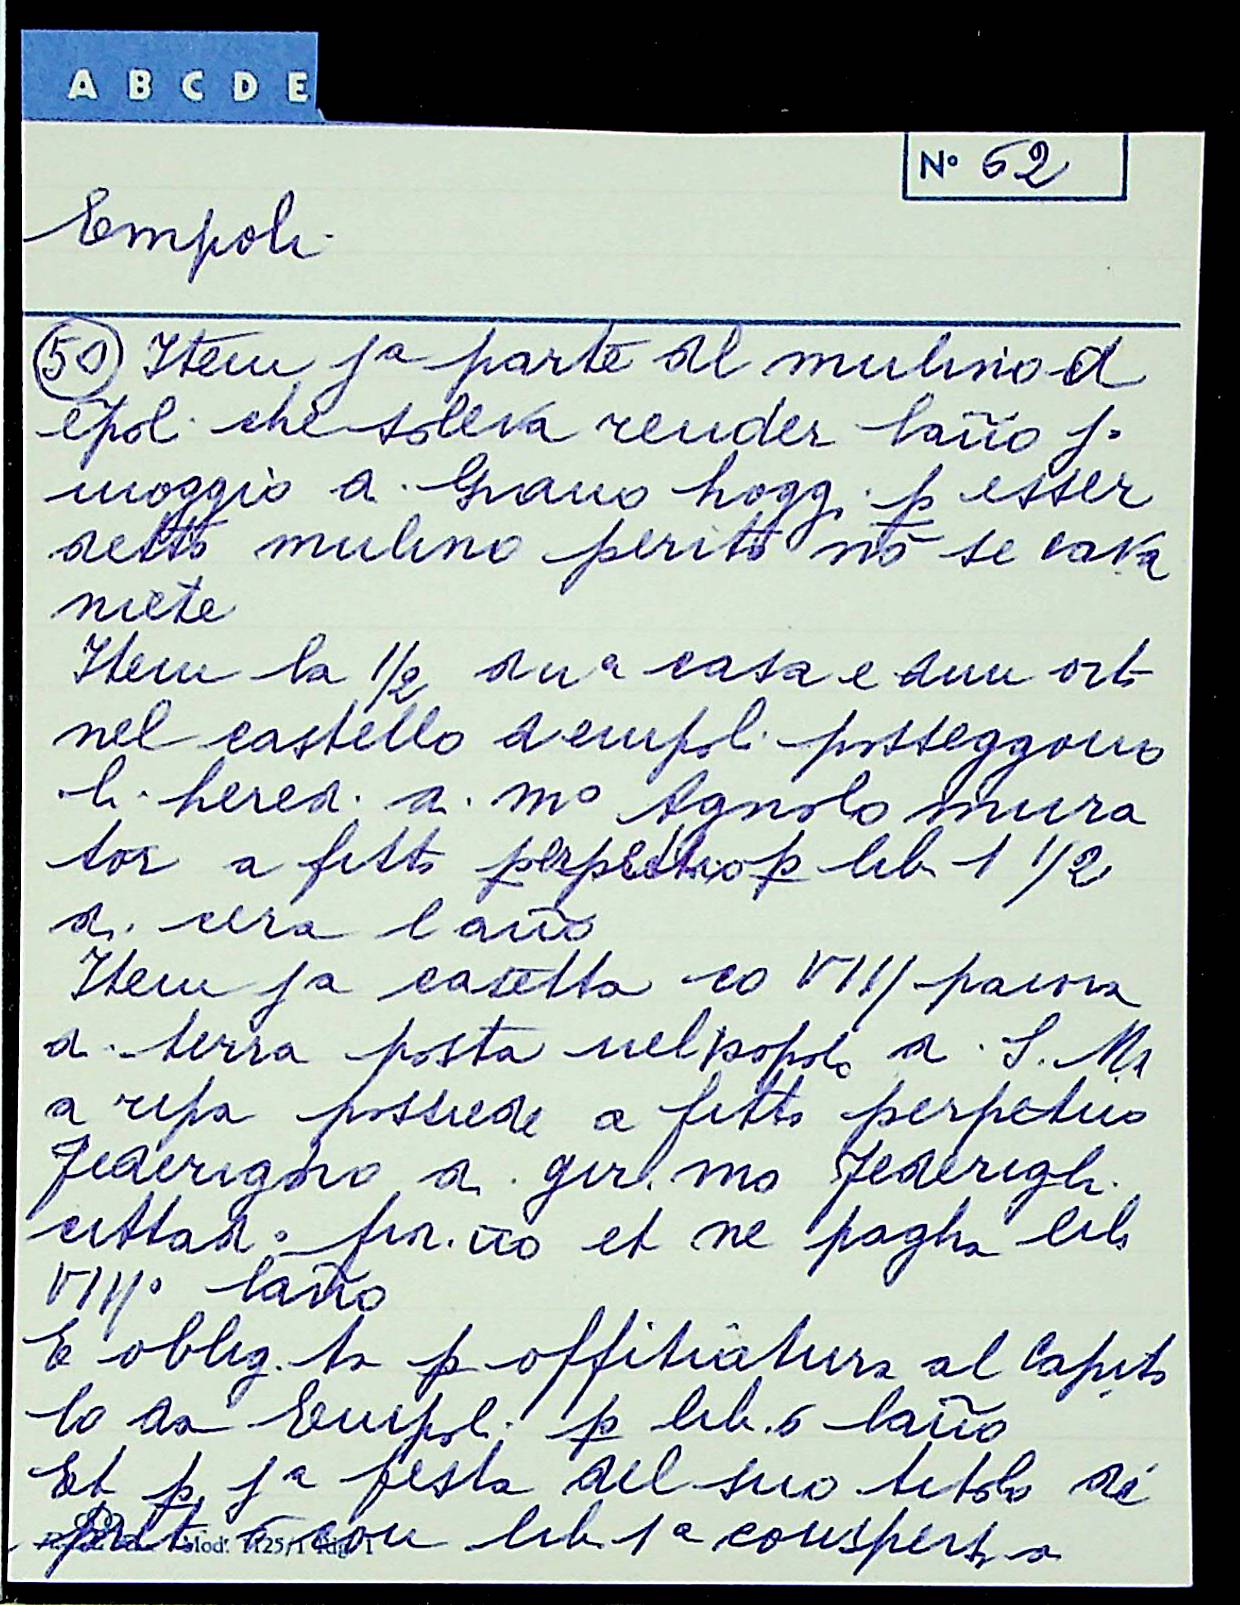 A B C D E
Nº 62
Empoli
50 Item ja parte del mulino d
ēpoli che soleva render lañno j.
moggio d. Grano hogg. p esser
detto mulino perito nō se cava
niēte
Item la 1/2 duna casa e dun orto
nel castello dempoli posseggono
li hered. d. mo Agnolo mura
tor a fitto perpetuo p lib 1 1/2
d. cera l'año
Item ja casetta co VIIJ panora
d. terra posta nel popolo d. S. Ma
a ripa possiede a fitto perpetuo
Federigho d. gir.mo Federighi
cittad.o fior.no et ne pagha lib
VIIJo laño
E oblig.ta p offitiatura al Capito
lo da Empoli p lib. 6 laño
Et p ja festa del suo titolo di
preti 6 con lib 1a
Mod. 1125/1 Rig. 1